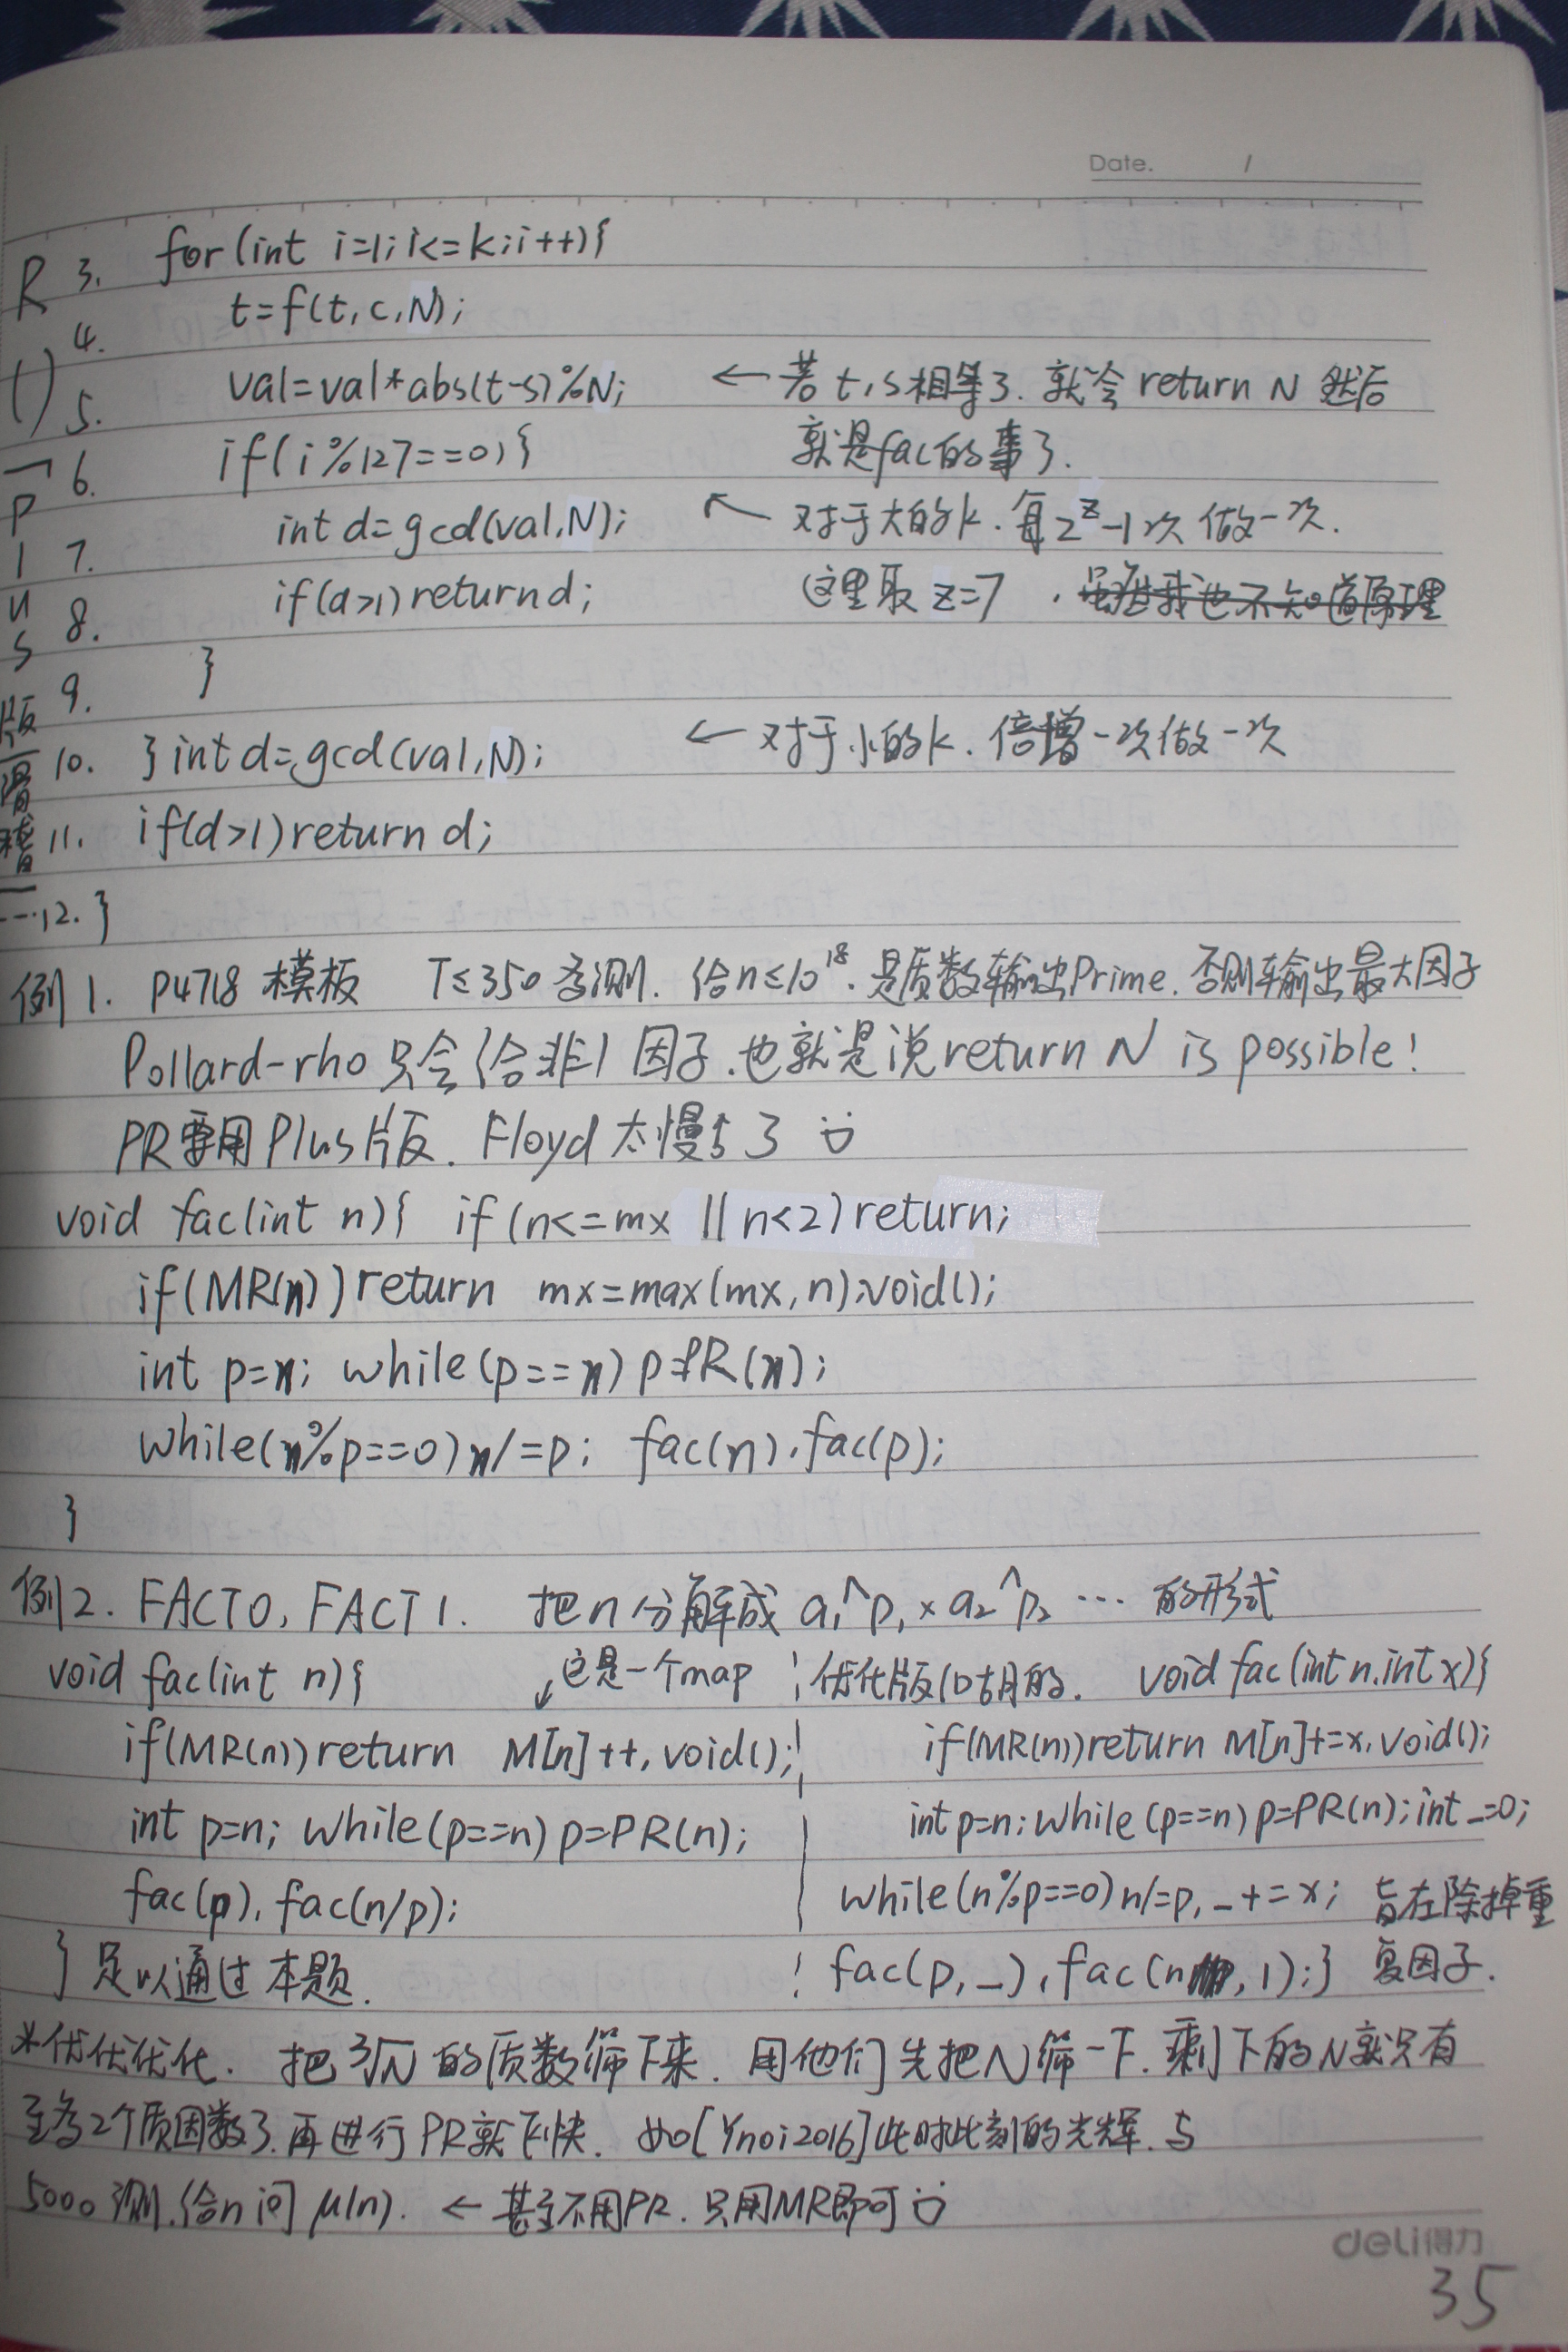 Date. /
3. for(int i=1;i<=k;i++){
4. t=f(t,c,N);
5. val=val*abs(t-s)%N; ← 若t,s相等了.就会return N 然后
6. if(i%127==0){ 就是fac的事了.
7. int d=gcd(val,N); ← 对于大的k.每2^z-1次做一次.
8. if(d>1)return d; 这里取z=7 . 虽然我也不知道原理
9. }
10. }int d=gcd(val,N); ← 对于小的k.倍增一次做一次
11. if(d>1)return d;
12. }
PR()一Plus版
滑稽
例1. P4718 模板 T≤350多测. 给n≤10^18.是质数输出Prime.否则输出最大因子
Pollard-rho只会给非1因子.也就是说return N is possible!
PR要用Plus版. Floyd太慢了
void fac(int n){ if(n<=mx || n<2)return;
if(MR(n))return mx=max(mx,n),void();
int p=n; while(p==n)p=PR(n);
while(n%p==0)n/=p; fac(n),fac(p);
}
例2. FACT0,FACT1. 把n分解成a₁^p₁×a₂^p₂…的形式
void fac(int n){ ↙这是一个map
if(MR(n))return M[n]++,void();
int p=n; while(p==n)p=PR(n);
fac(p),fac(n/p);
}足以通过本题.
优化版(口胡的. void fac(int n,int x){
if(MR(n))return M[n]+=x,void();
int p=n;while(p==n)p=PR(n);int _=0;
while(n%p==0)n/=p,_+=x; 旨在除掉重
fac(p,_),fac(n,1);} 复因子.
*优优优化. 把³√N的质数筛下来.用他们先把N筛一下.剩下的N就只有
至多2个质因数了.再进行PR就飞快. 如[Ynoi2016]此时此刻的光辉.与
5000测.给n问μ(n). ← 甚至不用PR.只用MR即可
deli得力
35